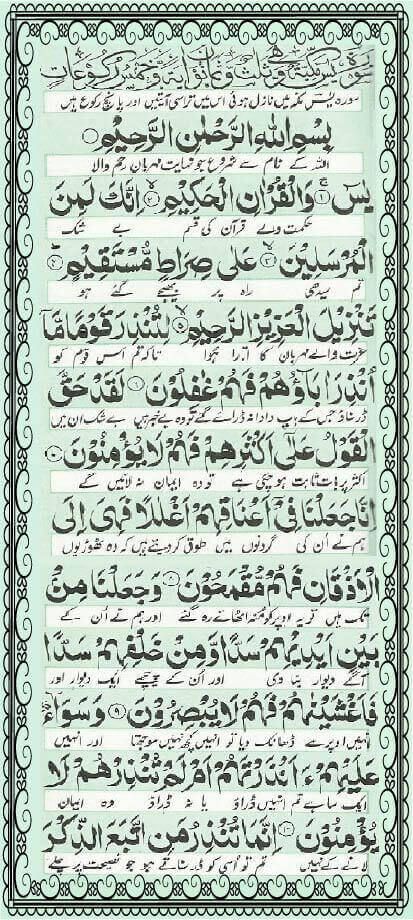 سورة يس مكية وهي ثلث وثمانون آية وخمس ركوعات
سورہ یٰسٓ مکہ میں نازل ہوئی اس میں تراسی آیتیں اور پانچ رکوع ہیں
بِسْمِ اللّٰهِ الرَّحْمٰنِ الرَّحِيْمِ
اللہ کے نام سے شروع جو نہایت مہربان رحم والا
يٰسٓ ۱ وَالْقُرْاٰنِ الْحَكِيْمِ ۲ اِنَّكَ لَمِنَ
حکمت والے قرآن کی قسم بے شک
الْمُرْسَلِيْنَ ۳ عَلٰى صِرَاطٍ مُّسْتَقِيْمٍ ۴
تم سیدھی راہ پر بھیجے گئے ہو
تَنْزِيْلَ الْعَزِيْزِ الرَّحِيْمِ ۵ لِتُنْذِرَ قَوْمًا مَّآ
عزت والے مہربان کا اتارا ہوا تاکہ تم اس قوم کو
اُنْذِرَ اٰبَآؤُهُمْ فَهُمْ غٰفِلُوْنَ ۶ لَقَدْ حَقَّ
ڈر سناؤ جس کے باپ دادا نہ ڈرائے گئے تو وہ بے خبر ہیں بے شک ان میں
الْقَوْلُ عَلٰٓى اَكْثَرِهِمْ فَهُمْ لَا يُؤْمِنُوْنَ ۷
اکثر پر بات ثابت ہو چکی ہے تو وہ ایمان نہ لائیں گے
اِنَّا جَعَلْنَا فِيْٓ اَعْنَاقِهِمْ اَغْلٰلًا فَهِىَ اِلَى
ہم نے ان کی گردنوں میں طوق کر دیئے ہیں کہ وہ ٹھوڑیوں
الْاَذْقَانِ فَهُمْ مُّقْمَحُوْنَ ۸ وَجَعَلْنَا مِنْۢ
تک ہیں تو یہ اوپر کو منہ اٹھائے رہ گئے اور ہم نے ان کے
بَيْنِ اَيْدِيْهِمْ سَدًّا وَّمِنْ خَلْفِهِمْ سَدًّا
آگے دیوار بنا دی اور ان کے پیچھے ایک دیوار اور
فَاَغْشَيْنٰهُمْ فَهُمْ لَا يُبْصِرُوْنَ ۹ وَسَوَآءٌ
انہیں اوپر سے ڈھانک دیا تو انہیں کچھ نہیں سوجھتا اور انہیں
عَلَيْهِمْ ءَاَنْذَرْتَهُمْ اَمْ لَمْ تُنْذِرْهُمْ لَا
ایک سا ہے تم انہیں ڈراؤ یا نہ ڈراؤ وہ ایمان
يُؤْمِنُوْنَ ۱۰ اِنَّمَا تُنْذِرُ مَنِ اتَّبَعَ الذِّكْرَ
لانے کے نہیں تم تو اسی کو ڈر سناتے ہو جو نصیحت پر چلے